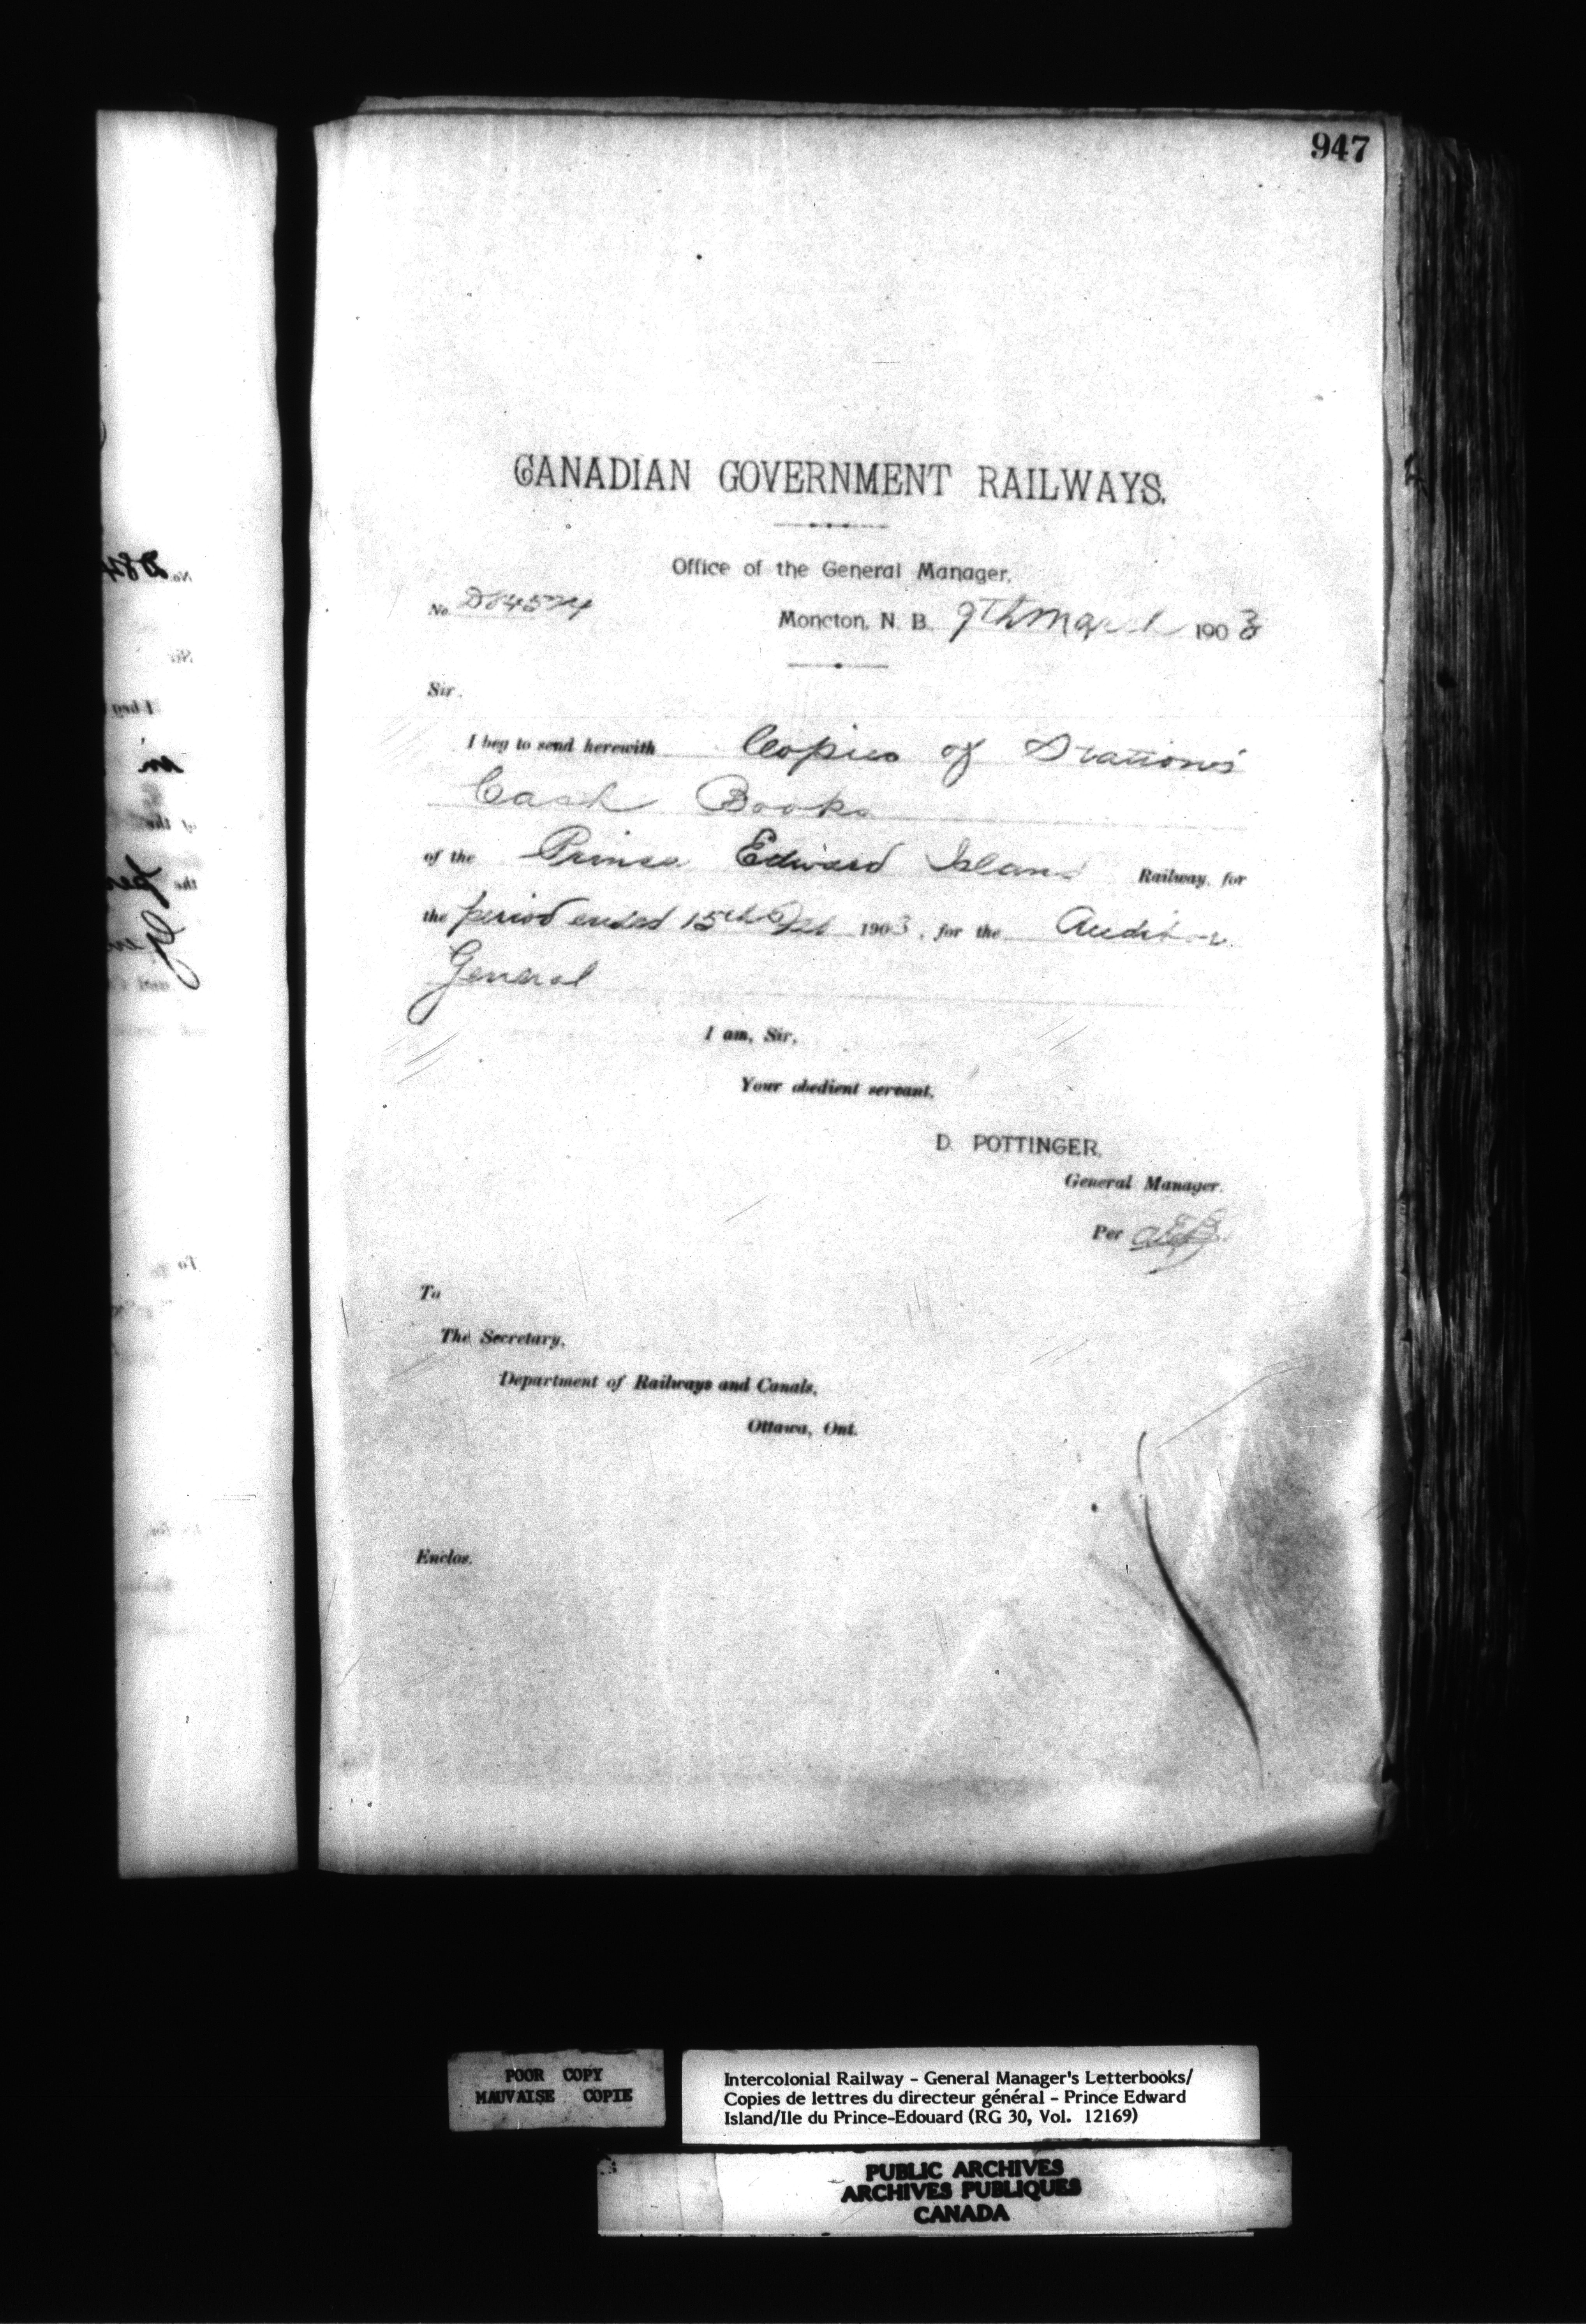 947
CANADIAN GOVERNMENT RAILWAYS.
Office of the General Manager.
No. D84574
Moncton, N. B. 9th March 1903
Sir.
I beg to send herewith Copies of Stations'
Cash Books
of the Prince Edward Island Railway, for
the period ended 15th Feb 1903, for the Auditor
General
I am, Sir,
Your obedient servant,
D. POTTINGER,
General Manager.
Per
To
The Secretary,
Department of Railways and Canals,
Ottawa, Ont.
Enclos.
POOR COPY
MAUVAISE COPIE
Intercolonial Railway - General Manager's Letterbooks/
Copies de lettres du directeur général - Prince Edward
Island/Ile du Prince-Edouard (RG 30, Vol. 12169)
PUBLIC ARCHIVES
ARCHIVES PUBLIQUES
CANADA